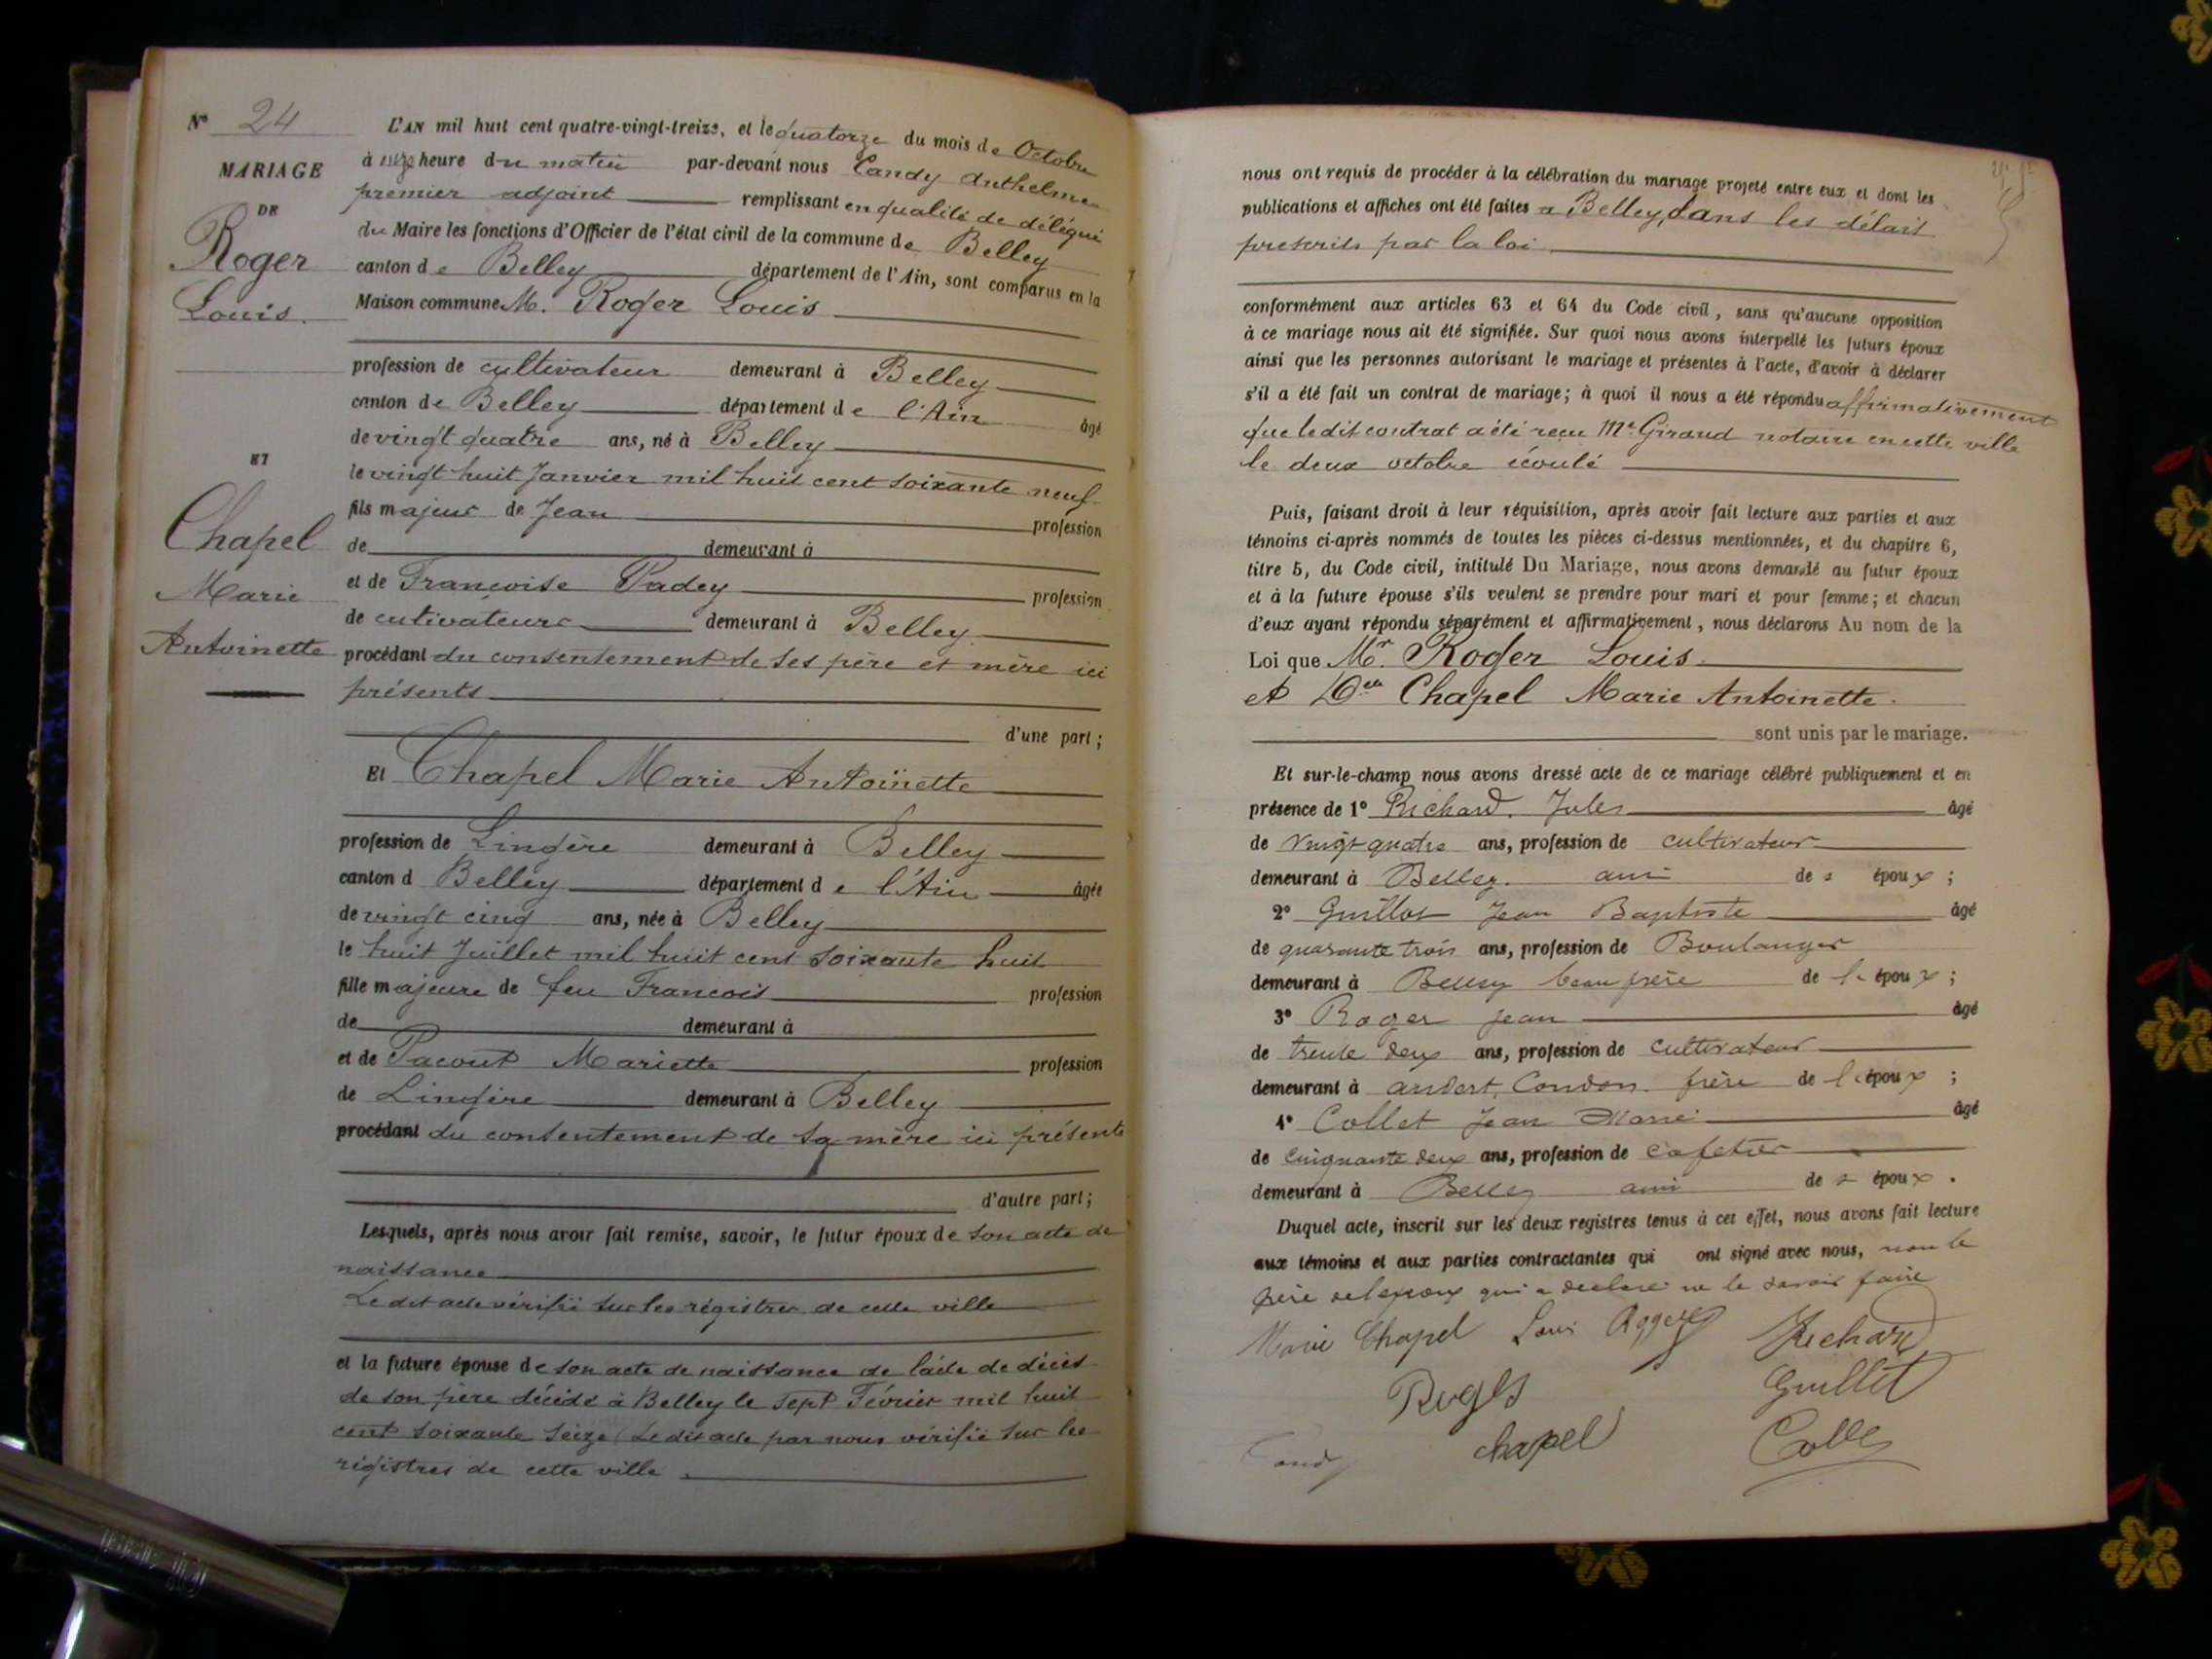 N° 24
MARIAGE
DE
Roger
Louis.
ET
Chapel
Marie
Antoinette
L'AN mil huit cent quatre-vingt-treize, et le quatorze du mois de Octobre
à onze heure du matin par-devant nous Candy Anthelme
premier adjoint remplissant en qualité de délégué
du Maire les fonctions d'Officier de l'état civil de la commune de Belley
canton de Belley département de l'Ain, sont comparus en la
Maison commune M. Roger Louis
profession de cultivateur demeurant à Belley
canton de Belley département de l'Ain âgé
de vingt quatre ans, né à Belley
le vingt huit Janvier mil huit cent soixante neuf
fils majeur de Jean profession
de demeurant à
et de Françoise Padey profession
de cutivateurs demeurant à Belley
procédant du consentement de ses père et mère ici
présents
d'une part;
Et Chapel Marie Antoinette
profession de Lingère demeurant à Belley
canton d Belley département de l'Ain âgée
de vingt cinq ans, née à Belley
le huit Juillet mil huit cent soixante huit
fille majeure de feu François profession
de demeurant à
et de Pacout Mariette profession
de Lingère demeurant à Belley
procédant du consentement de sa mère ici présente
d'autre part;
Lesquels, après nous avoir fait remise, savoir, le futur époux de son acte de
naissance
Le dit acte vérifié sur les régistres de cette ville
et la future épouse de son acte de naissance de l'acte de décès
de son père décédé à Belley le sept Février mil huit
cent soixante seize Le dit acte par nous vérifié sur les
régistres de cette ville
nous ont requis de procéder à la célébration du mariage projeté entre eux et dont les
publications et affiches ont été faites a Belley, dans les délais
prescrits par la loi
conformément aux articles 63 et 64 du Code civil, sans qu'aucune opposition
à ce mariage nous ait été signifiée. Sur quoi nous avons interpellé les futurs époux
ainsi que les personnes autorisant le mariage et présentes à l'acte, d'avoir à déclarer
s'il a été fait un contrat de mariage; à quoi il nous a été répondu affirmativement
que ledit contrat a été reçu Me Giraud notaire en cette ville
le deux octobre écoulé
Puis, faisant droit à leur réquisition, après avoir fait lecture aux parties et aux
témoins ci-après nommés de toutes les pièces ci-dessus mentionnées, et du chapitre 6,
titre 5, du Code civil, intitulé Du Mariage, nous avons demandé au futur époux
et à la future épouse s'ils veulent se prendre pour mari et pour femme; et chacun
d'eux ayant répondu séparément et affirmativement, nous déclarons Au nom de la
Loi que Mr. Roger Louis.
et Delle Chapel Marie Antoinette.
sont unis par le mariage.
Et sur-le-champ nous avons dressé acte de ce mariage célébré publiquement et en
présence de 1° Richard. Jules âgé
de vingt quatre ans, profession de cultivateur
demeurant à Belley. ami de s époux;
2° Guillot Jean Baptiste âgé
de quarante trois ans, profession de Boulanger
demeurant à Belley beau frère de l'époux;
3° Roger Jean âgé
de trente deux ans, profession de cultivateur
demeurant à andert, Condon. frère de l'époux;
4° Collet Jean Marie âgé
de cinquante deux ans, profession de cafetier
demeurant à Belley ami de s époux.
Duquel acte, inscrit sur les deux registres tenus à cet effet, nous avons fait lecture
aux témoins et aux parties contractantes qui ont signé avec nous, non le
père de l'époux qui a déclaré ne le savoir faire
Marie Chapel Louis Rogger Richard
Guillet
chapel